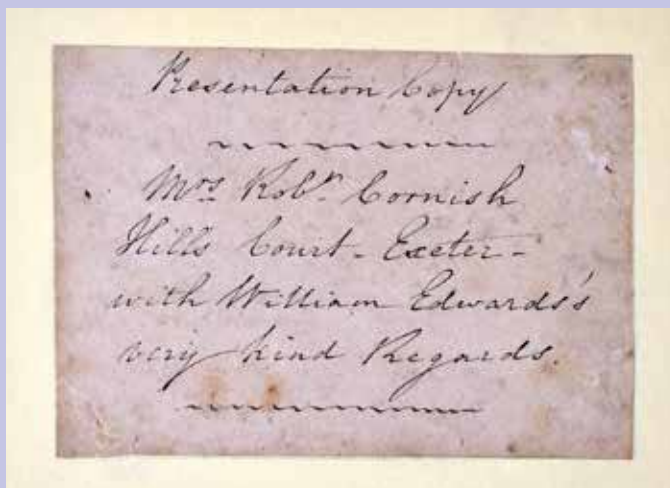 Presentation Copy
Mrs. Robt. Cornish
Hills Court - Exeter -
with William Edwards's
very kind Regards.